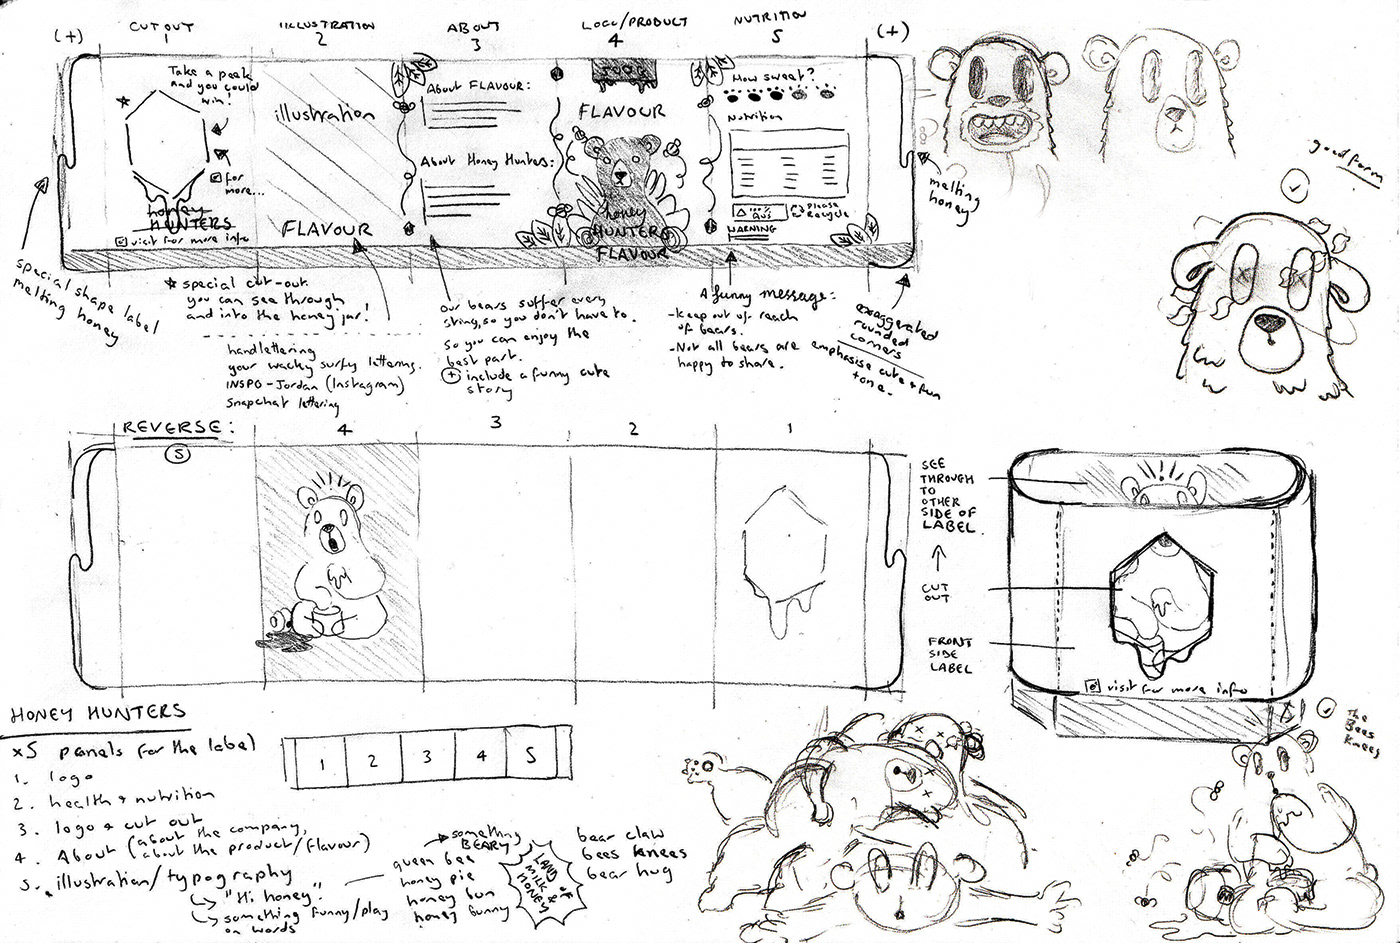 (+)
CUT OUT
1
ILLUSTRATION
2
ABOUT
3
LOGO/PRODUCT
4
NUTRITION
5
(+)
Take a peek
and you could
win!
for
more...
honey
HUNTERS
visit for more info
illustration
FLAVOUR
About FLAVOUR:
About Honey Hunters:
500g
FLAVOUR
honey
HUNTERS
FLAVOUR
How sweet?
Nutrition
100%
Please
Recycle
WARNING
melting
honey
good form
special shape label
melting honey
★ special cut-out
you can see through
and into the honey jar!
handlettering
your wacky surfy lettering.
INSPO - Jordan (Instagram)
Snapchat lettering
our bears suffer every
sting, so you don't have to.
so you can enjoy the
best part.
(+) include a funny cute
story
A funny message:
- Keep out of reach
of bears.
- Not all bears are
happy to share.
exaggerated
rounded
corners
emphasise cute + fun
tone.
REVERSE:
5
4
3
2
1
SEE
THROUGH
TO
OTHER
SIDE OF
LABEL
CUT
OUT
FRONT
SIDE
LABEL
visit for more info
HONEY HUNTERS
x5 panels for the label
1. logo
2. health + nutrition
3. logo + cut out
4. About (about the company,
about the product/flavour)
5. illustration/typography
"Hi honey".
something funny/play
on words
1 2 3 4 5
something
BEARY
queen bee
honey pie
honey bun
honey bunny
LAND OF
milk &
HONEY
bear claw
bees knees
bear hug
The
Bees
Knees